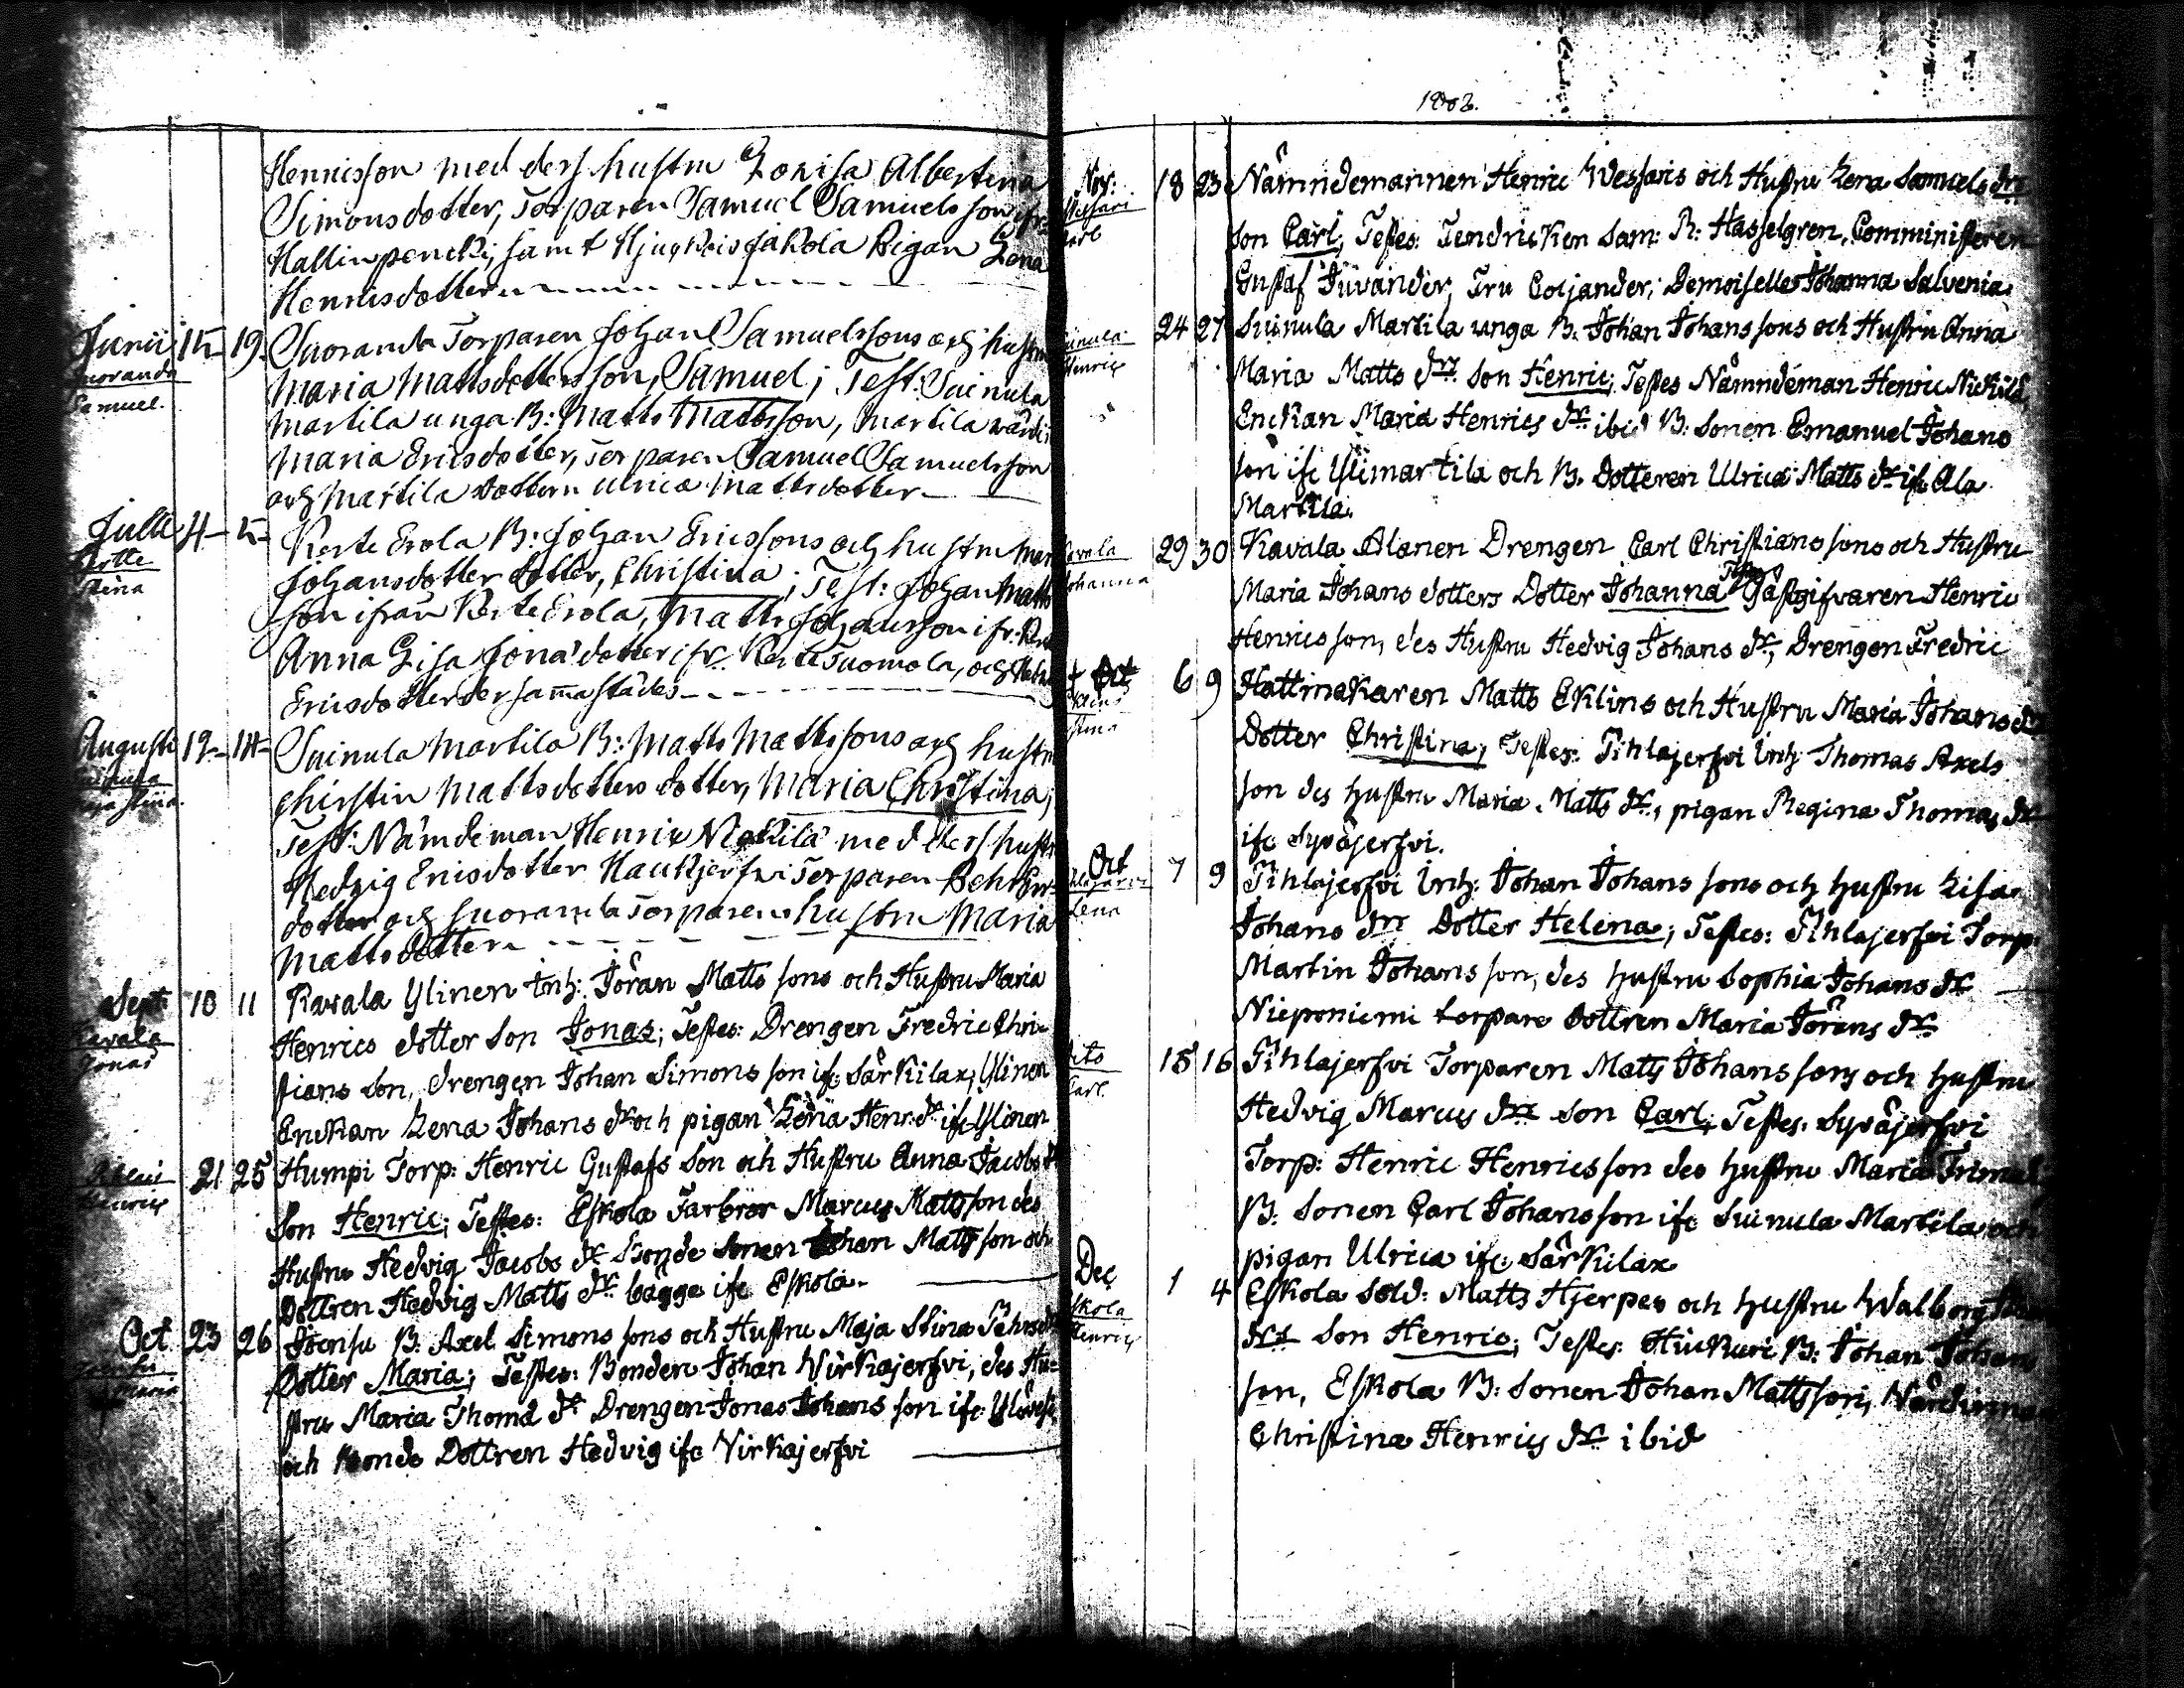 Henricsson med dess hustru Lovisa Albertina
Simonsdotter, Torparen Samuel Samuelsson ifr:
Hallinpencki, samt Jakola Pigan Lena
Henricsdotter
Junii 15 19 Suoranda Torparen Johan Samuelssons och hustru
Suoranda Maria Mattsdotters son, Samuel; Test: Suinula
Samuel. Martila unga B: Matts Mattsson, Martila
Maria Ericsdotter, Torparen Samuel Samuelsson
och Martila dottern Ulrica Mattsdotter
Julii 4 5 Kerte Erola B: Johan Ericssons och hustru
Kertte Johansdotter dotter, Christina; Test: Johan Matts
Stina son ifrån Kerte Erola, Matts Johansson ifr:
Anna Lisa Jonadotter ifr. Kerte Tuomola, och
Ericsdotter dersammastädes
Augusti 12 14 Suinula Martila B: Matts Mattssons och hustru
Suinula Chirstin Mattsdotters dotter, Maria Christina;
Maja Stina. Test: Nämdeman Henric Nickilä med dess hustru
Hedvig Ericsdotter Haukjerfwi Torparen
dotter och Suoranda Torparens hustru Maria
Mattsdotter
Sept 10 11 Kavala Ylinen Inh: Jöran Matts sons och Hustru Maria
Kavala Henrics dotter Son Jonas; Testes: Drengen Fredric Chri-
Jonas stians Son, drengen Johan Simons son ifr: Särkilax, Ylinen
Enckan Lena Johans dr och pigan Lena Henr: dr ifr Ylinen
21 25 Humpi Torp: Henric Gustafs Son och Hustru Anna Jacobs dr
Henric Son Henric; Testes: Eskola Farbror Marcus Mattsson des
Hustru Hedvig Jacobs dr Bonde Sonen Johan Matts son och
Dottren Hedvig Matts dr bägge ifr Eskola.
Oct 23 26 Joensu B: Axel Simons sons och Hustru Maja Stina Pehrs dr
Maria Dotter Maria; Testes: Bonden Johan Wirkajerfvi, des Hu-
stru Maria Thoma dr Drengen Jonas Johans son ifr
och Bonde Dottren Hedvig ifr Virkajerfvi
1802.
Nov: 18 23 Nämndemannen Henric Wessaris och Hustru Lena Samuels drs
Carl Son Carl, Testes: Fendricken Sam: R: Hasselgren, Comministeren
Gustaf Juvander, Fru Coljander, Demoiselle Johanna Salvenia
24 27 Suinula Martila unga B. Johan Johans sons och Hustru Anna
Henric Maria Matts drs Son Henric; Testes Nämndeman Henric Nickilä,
Enckan Maria Henrics dr ibid B: Sonen Emanuel Johans
son ifr Ylimartila och B. Dotteren Ulrica Matts dr ifr Ala
Martila.
Kavala 29 30 Kavala Alanen Drengen Carl Christians sons och Hustru
Johanna Maria Johans dotters Dotter Johanna Testes Gästgifvaren Henric
Henrics son, des Hustru Hedvig Johans dr, Drengen Fredric
Oct 6 9 Hattmakaren Matts Eklins och Hustru Maria Johans drs
Stina Dotter Christina; Testes: Pihlajerfvi Inh: Thomas Axels
son des hustru Maria Matts dr, pigan Regina Thomas dr
ifr Syväjerfvi.
Oct 7 9 Pihlajerfvi Inh: Johan Johans sons och hustru Lisa
Lena Johans drs Dotter Helena; Testes: Pihlajerfvi Torp:
Martin Johans son, des hustru Sophia Johans dr
Nieponiemi torpare Dottren Maria Jörans dr
Dito 15 16 Pihlajerfvi Torparen Matts Johans sons och hustru
Carl. Hedvig Marcus drs Son Carl; Testes: Syväjerfvi
Torp: Henric Henrics son des hustru Maria
B: Sonen Carl Johans son ifr Suinula Martila och
pigan Ulrica ifr: Särkilax
Dec 1 4 Eskola Sold: Matts Hjerpes och hustru Walborg
Eskola drs Son Henric; Testes: Hiukuri B: Johan Johans
Henric son, Eskola B: Sonen Johan Mattsson,
Christina Henrics dr ibid